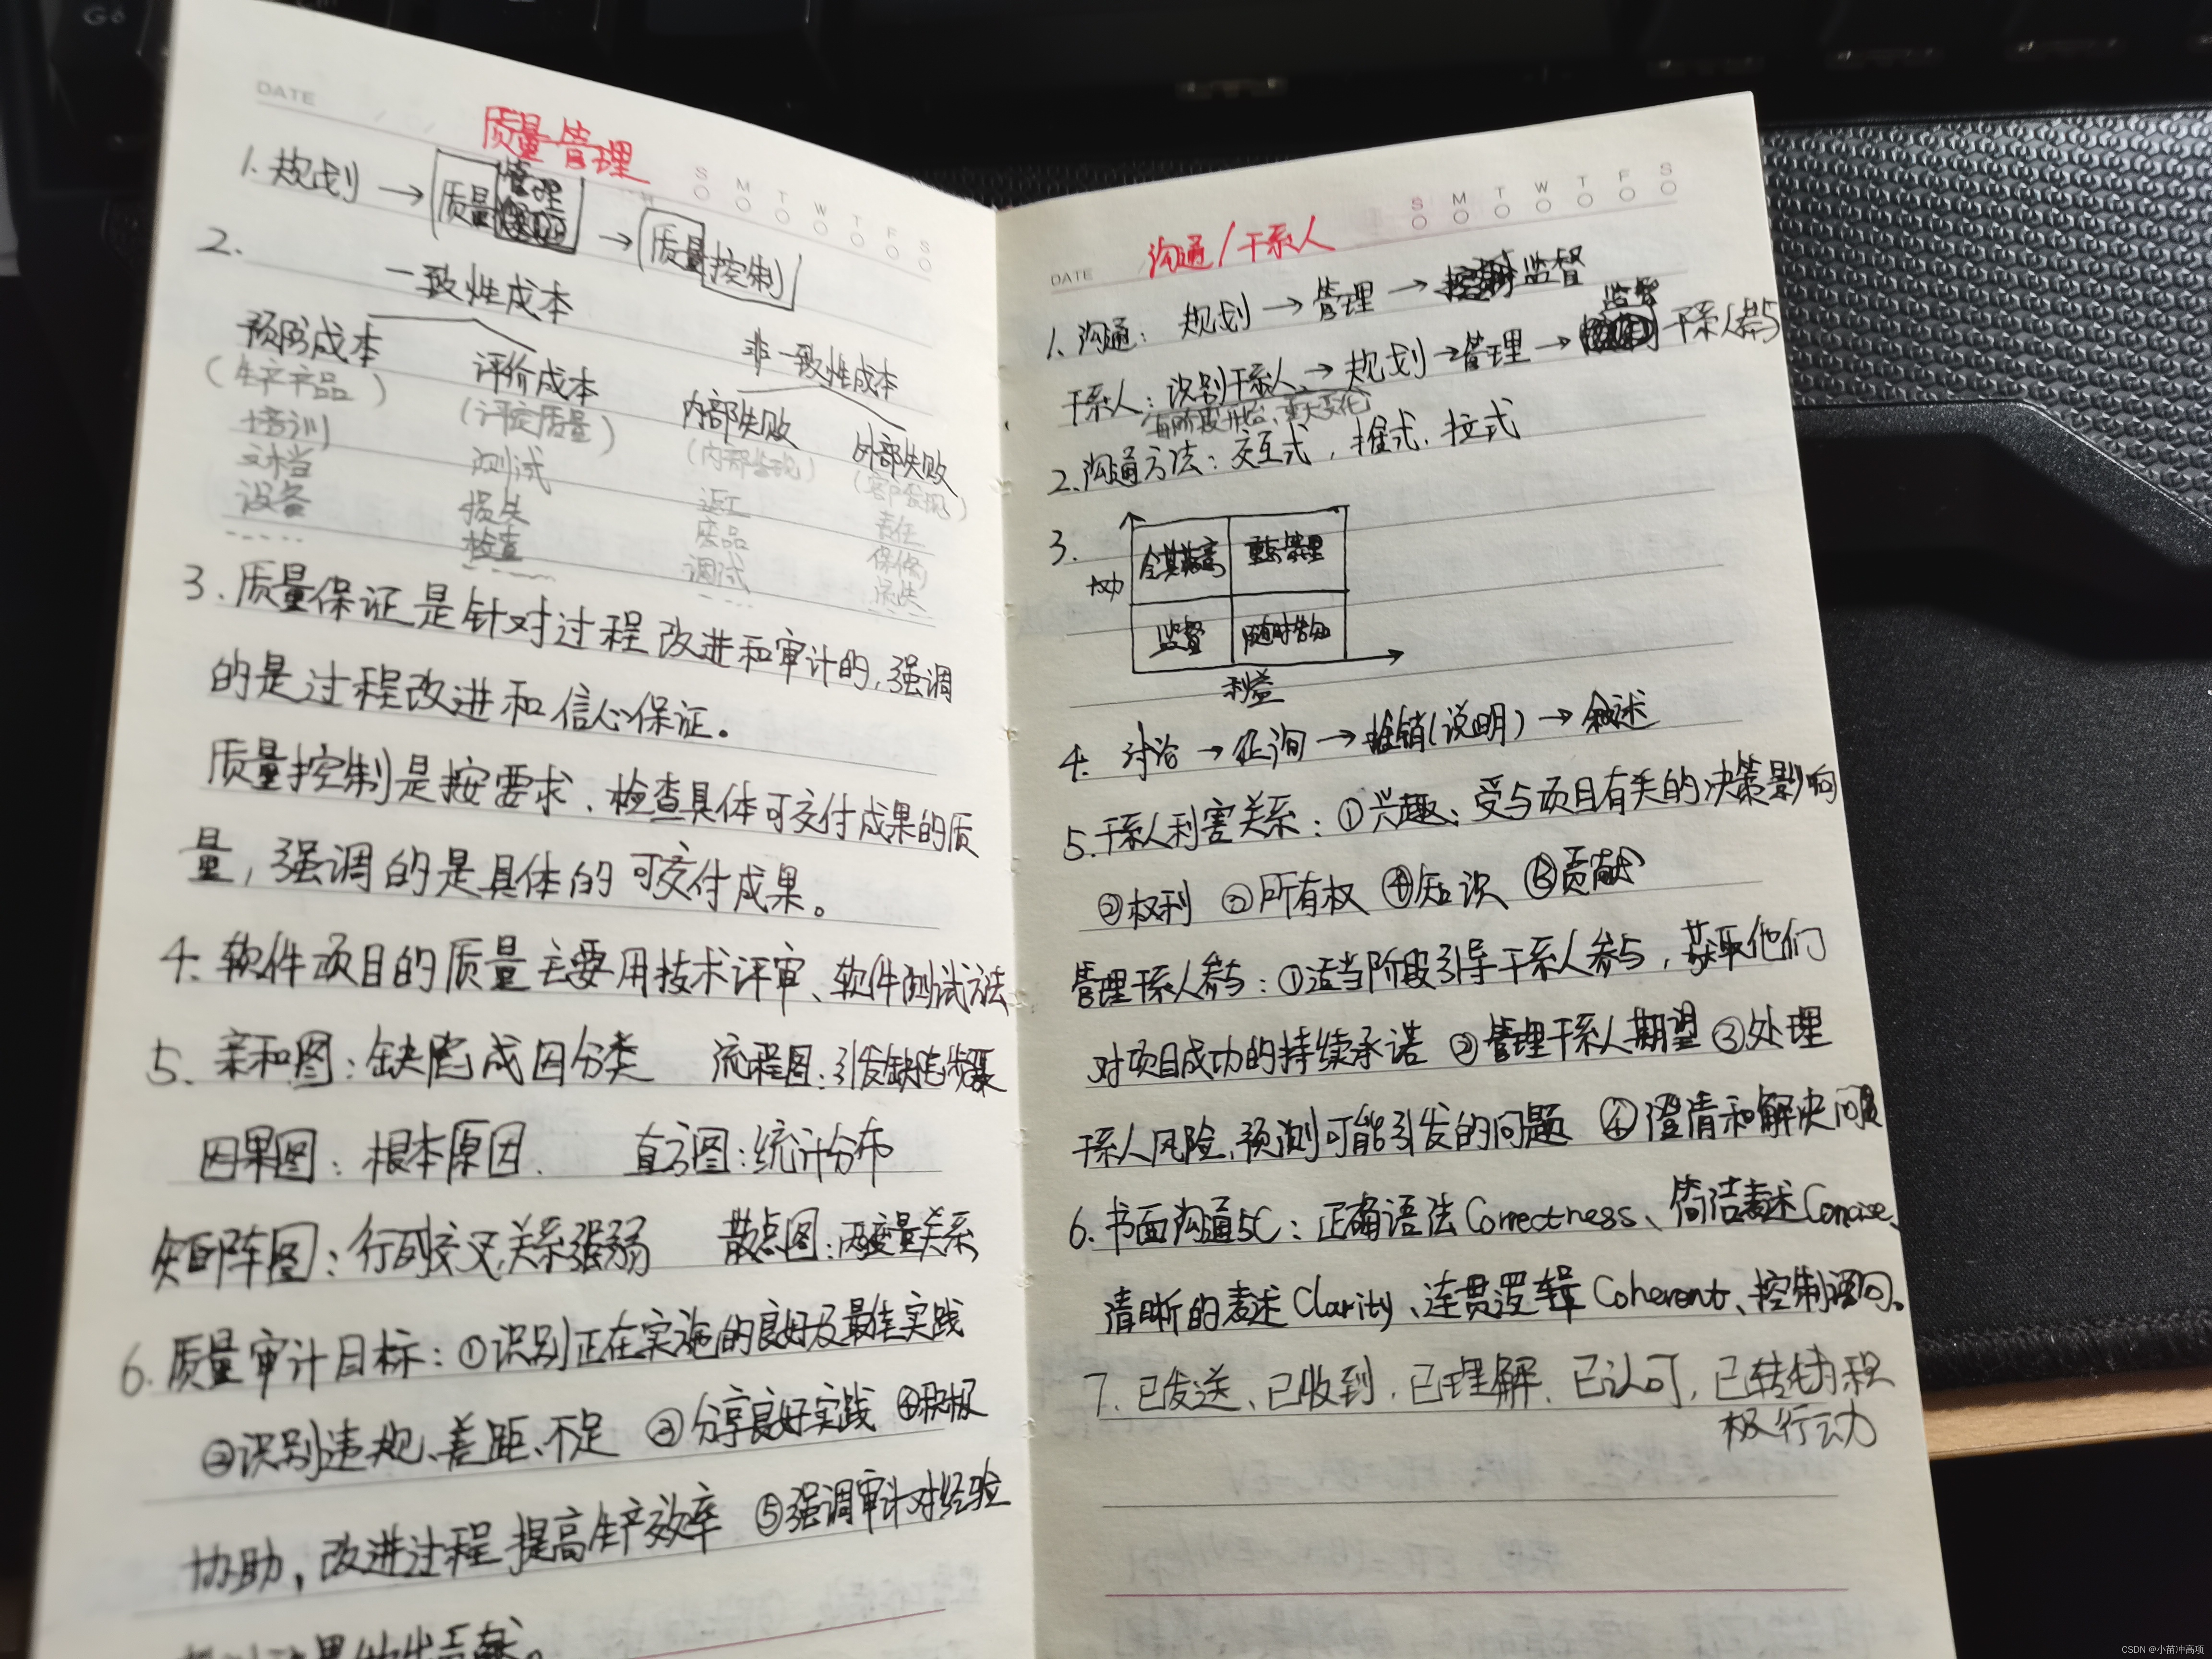 DATE
质量管理
S M T W T F S
1. 规划 → 质量管理 → 质量控制
2.
一致性成本
非一致性成本
预防成本 评价成本 内部失败 外部失败
(生产产品) (评定质量) (内部发现) (客户发现)
培训 测试 返工 责任
文档 损失 废品 保修
设备 检查 调试 流失
3. 质量保证是针对过程改进和审计的,强调
的是过程改进和信心保证。
质量控制是按要求、检查具体可交付成果的质
量,强调的是具体的可交付成果。
4. 软件项目的质量主要用技术评审、软件测试方法
5. 亲和图:缺陷成因分类 流程图:引发缺陷步骤
因果图:根本原因. 直方图:统计分布
矩阵图:行列交叉,关系强弱 散点图:两变量关系
6. 质量审计目标:①识别正在实施的良好及最佳实践
②识别违规、差距、不足 ③分享良好实践 ④积极
协助,改进过程 提高生产效率 ⑤强调审计对经验
DATE
沟通/干系人
S M T W T F S
1. 沟通: 规划 → 管理 → 监督
干系人:识别干系人 → 规划 → 管理 → 监督 干系人参与
每阶段开始、重大变化
2. 沟通方法:交互式,推式.拉式
3.
权力
令其满意 重点管理
监督 随时告知
利益
4. 讨论 → 征询 → 推销(说明) → 叙述
5. 干系人利害关系:①兴趣:受与项目有关的决策影响
②权利 ③所有权 ④知识 ⑤贡献
管理干系人参与:①适当阶段引导干系人参与,获取他们
对项目成功的持续承诺 ②管理干系人期望 ③处理
干系人风险,预测可能引发的问题 ④澄清和解决问题
6. 书面沟通5C:正确语法Correctness、简洁表述Concise、
清晰的表述Clarity、连贯逻辑Coherent、控制语句。
7. 已发送、已收到.已理解.已认可,已转为积
极行动
CSDN @小苗冲高项